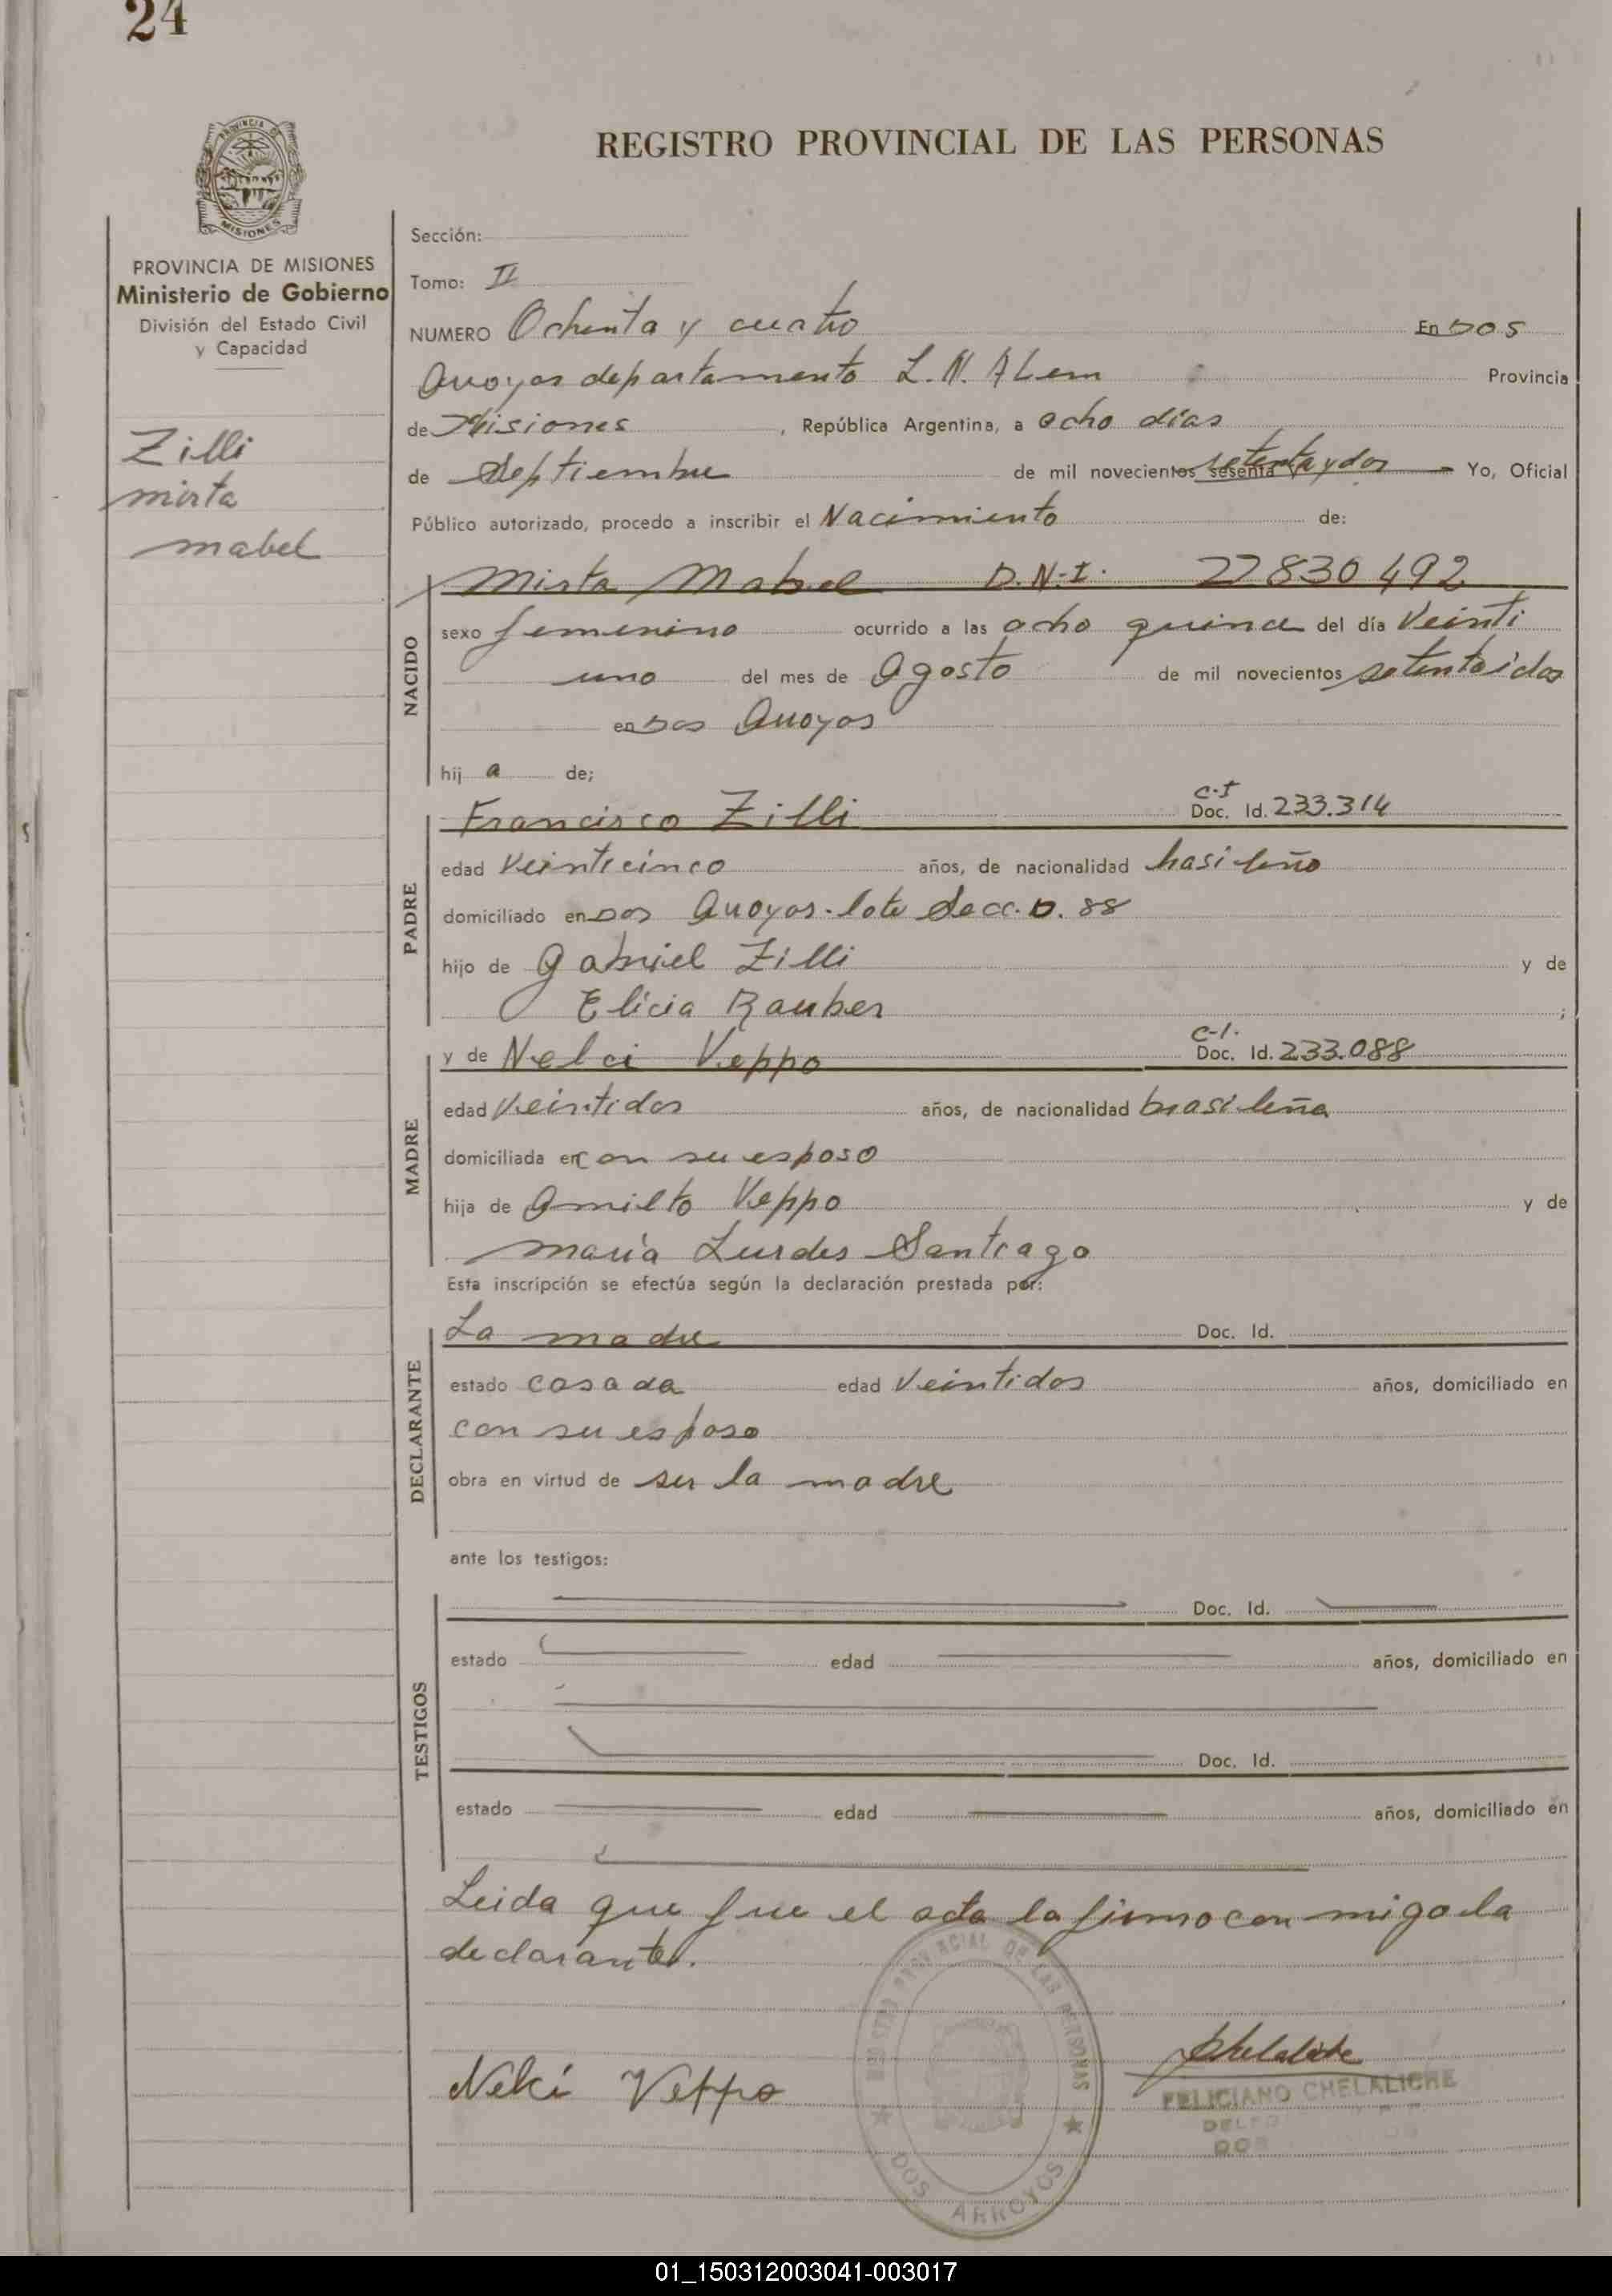 24
PROVINCIA DE
MISIONES
REGISTRO PROVINCIAL DE LAS PERSONAS
PROVINCIA DE MISIONES
Ministerio de Gobierno
División del Estado Civil
y Capacidad
Zilli
mirta
mabel
Sección:
Tomo: II
NUMERO Ochenta y cuatro En Dos
Arroyos departamento L. N. ALem Provincia
de Misiones, República Argentina, a ocho días
de Septiembre de mil novecientos sesenta setenta y dos Yo, Oficial
Público autorizado, procedo a inscribir el Nacimiento de:
NACIDO
Mirta Mabel D.N.I. 22830492
sexo femenino ocurrido a las ocho quince del día Veinti
uno del mes de Agosto de mil novecientos setentaidos
en Dos Arroyos
hij a de;
PADRE
Francisco Zilli C.I Doc. Id. 233.314
edad Veinticinco años, de nacionalidad brasileño
domiciliado en Dos Arroyos. lote Secc. D. 88
hijo de Gabriel Zilli y de
Elicia Rauber ;
MADRE
y de Nelci Veppo C-I. Doc. Id. 233.088
edad Veintidos años, de nacionalidad brasileña
domiciliada en con su esposo
hija de Amilto Veppo y de
María Lurdes Santiago
Esta inscripción se efectúa según la declaración prestada por:
DECLARANTE
La madre Doc. Id.
estado casada edad Veintidos años, domiciliado en
con su esposo
obra en virtud de ser la madre
ante los testigos:
TESTIGOS
Doc. Id.
estado edad años, domiciliado en
Doc. Id.
estado edad años, domiciliado en
Leida que fue el acta la firmo con migo la
declarante.
Nelci Veppo
REGISTRO PROVINCIAL DE LAS PERSONAS
DOS ARROYOS
Chelaliche
FELICIANO CHELALICHE
01_150312003041-003017